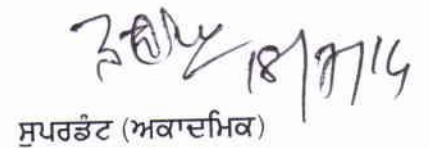 18/7/14
ਸੁਪਰਡੰਟ (ਅਕਾਦਮਿਕ)